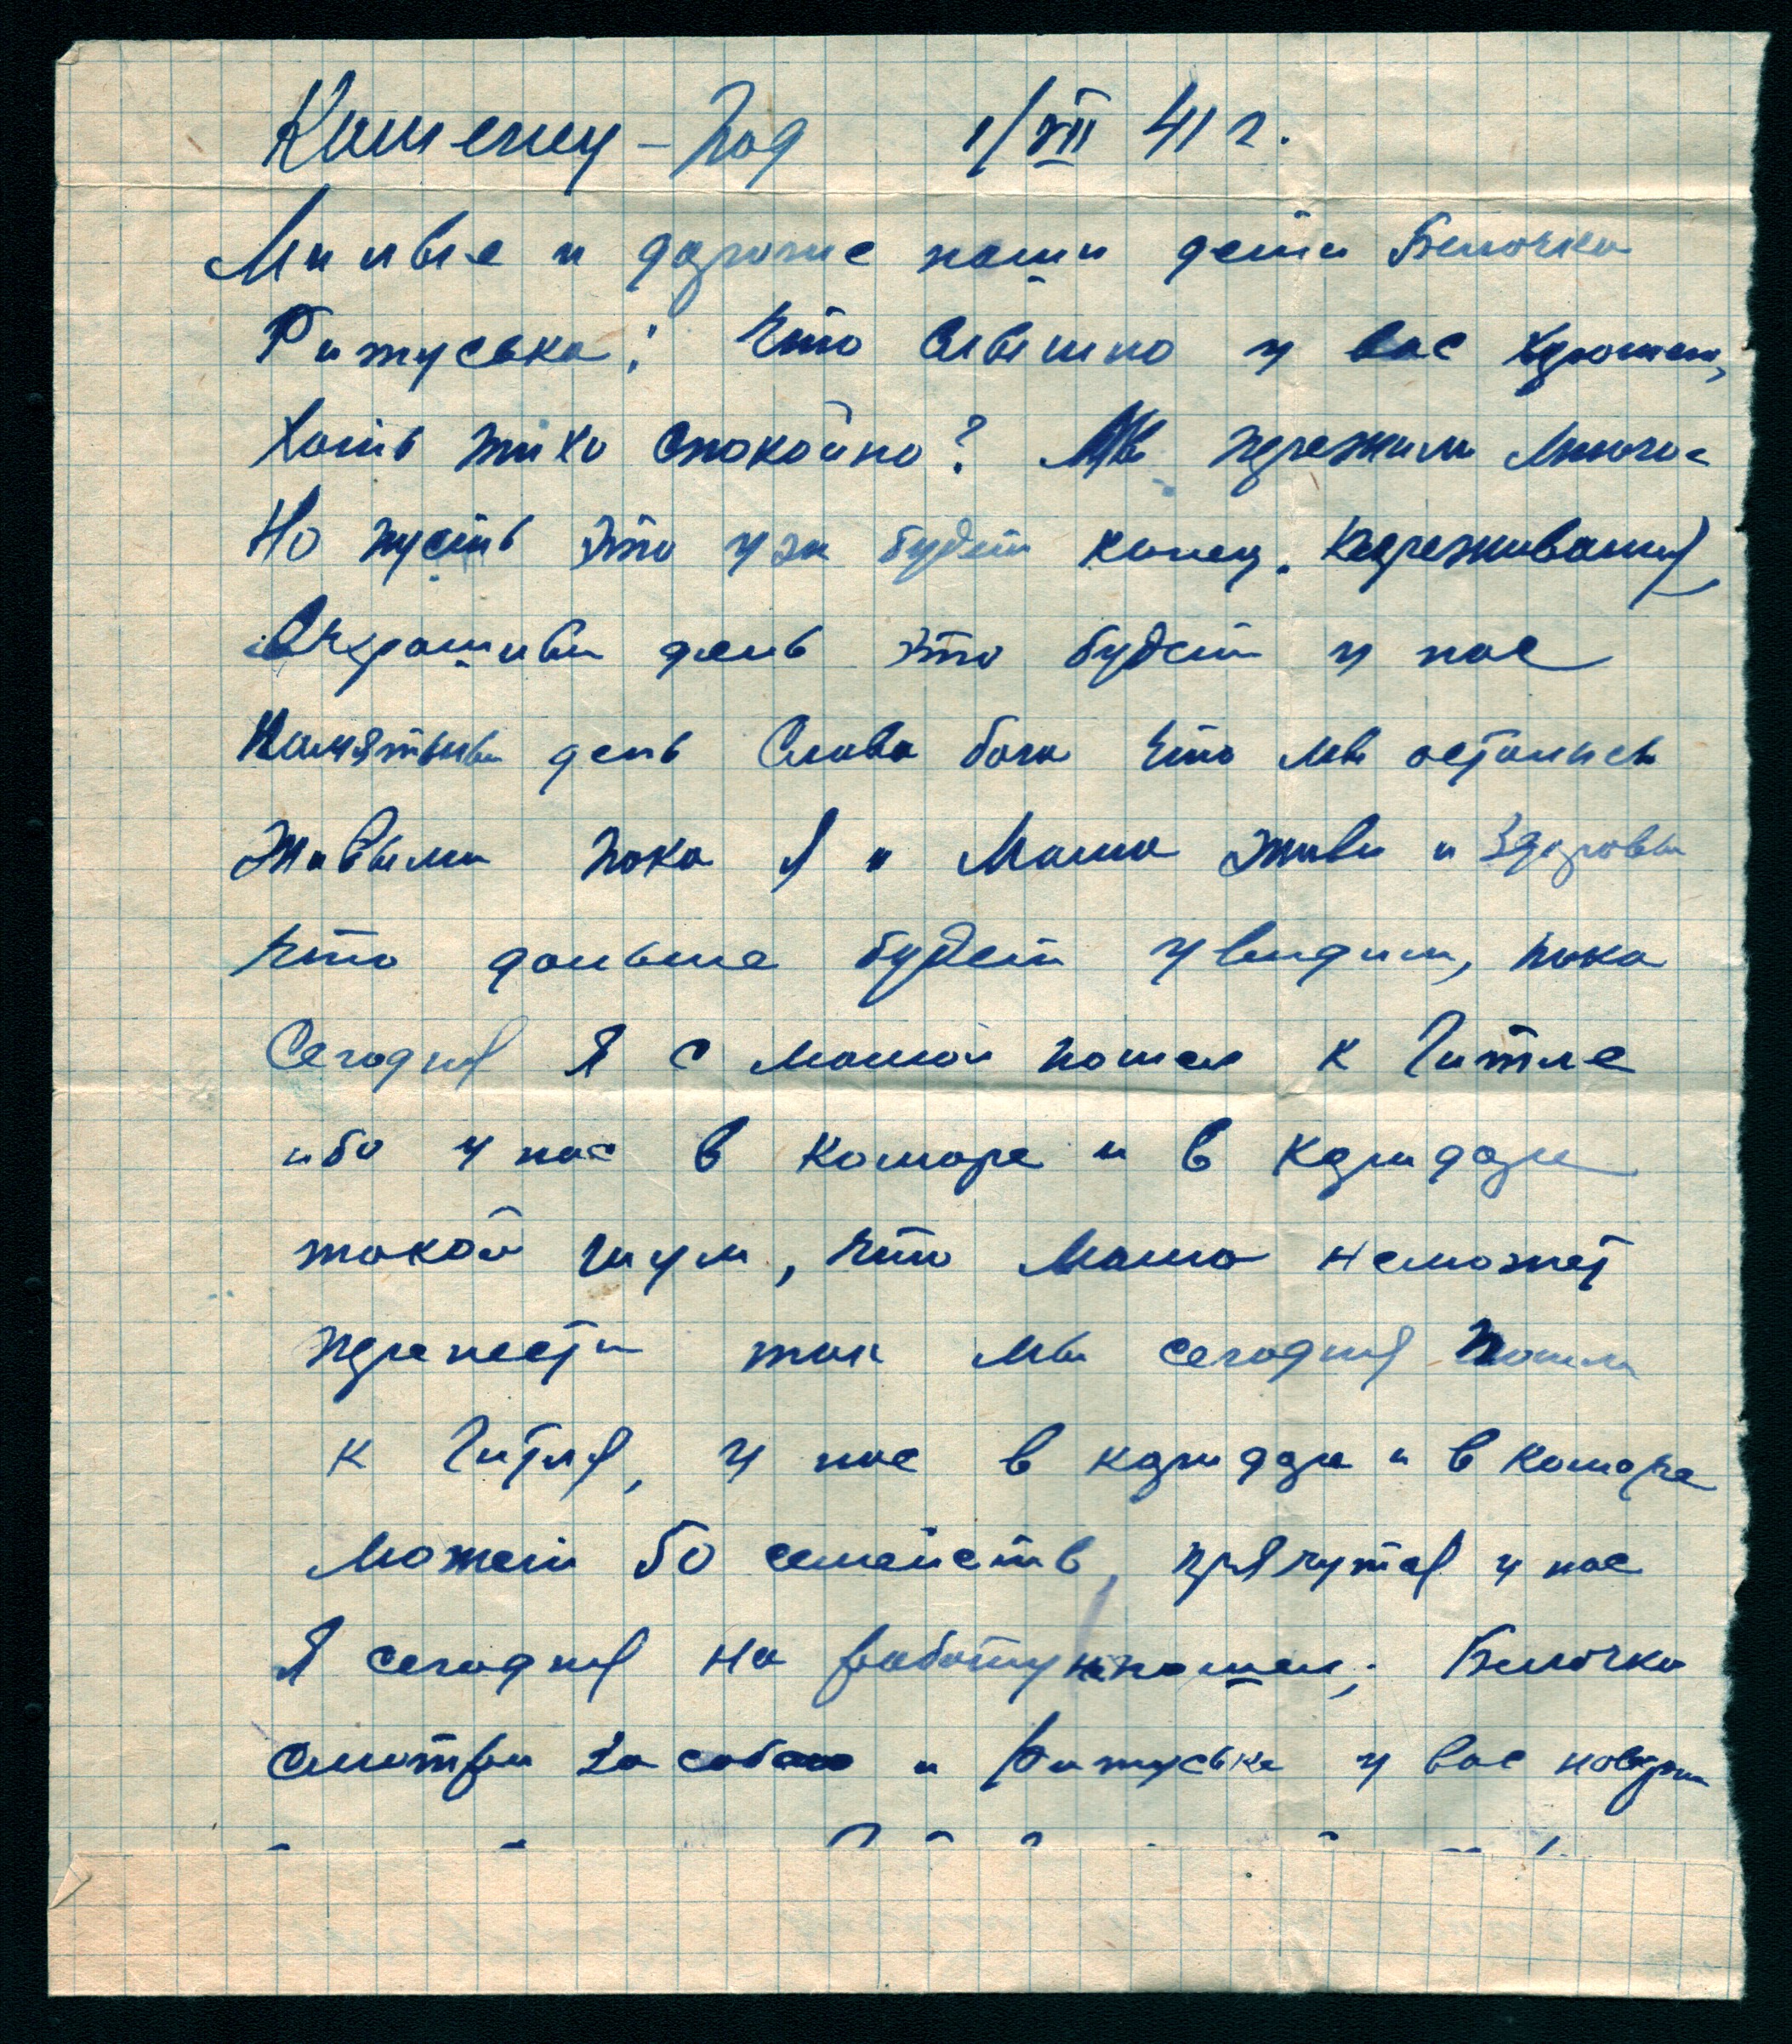 Каменец-Под 1/VII 41 г.
Милые и дорогие наши дети Беллочка
Ритуська! Что слышно у вас
хоть тихо спокойно? Мы пережили много
Но пусть это уж будет конец. переживания
день это будет у нас
Памятный день Слава богу что мы остались
живыми пока Я и Мама живы и здоровы
что дальше будет увидим, пока
Сегодня Я с мамой пошел к Гитле
ибо у нас в коморе и в коридоре
такой шум, что Мама неможет
перенести так мы сегодня пошли
к Гитля, у нас в коридоре и в коморе
может 50 семейств, прячутся у нас
Я сегодня на работу непошел; Беллочка
смотри за собою и Ритуська у вас наверн